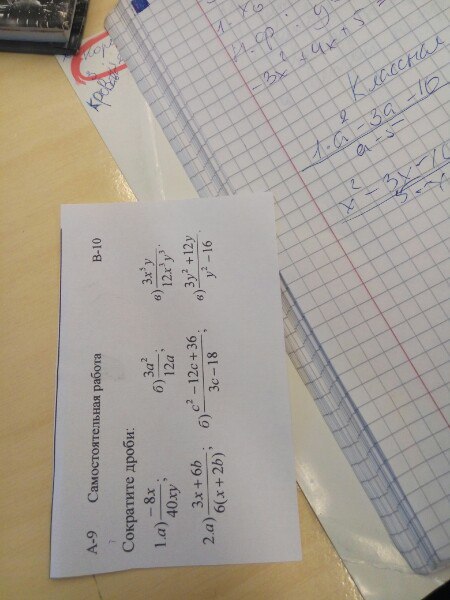 А-9 Самостоятельная работа В-10
Сократите дроби:
1.а) -8x/40xy; б) 3a²/12a; в) 3x⁵y/12x³y³.
2.а) 3x+6b/6(x+2b); б) c²-12c+36/3c-18; в) 3y²+12y/y²-16.
-3x²+4x+5=
Классная
1. a²-3a-10/a-5
x²-3x-10